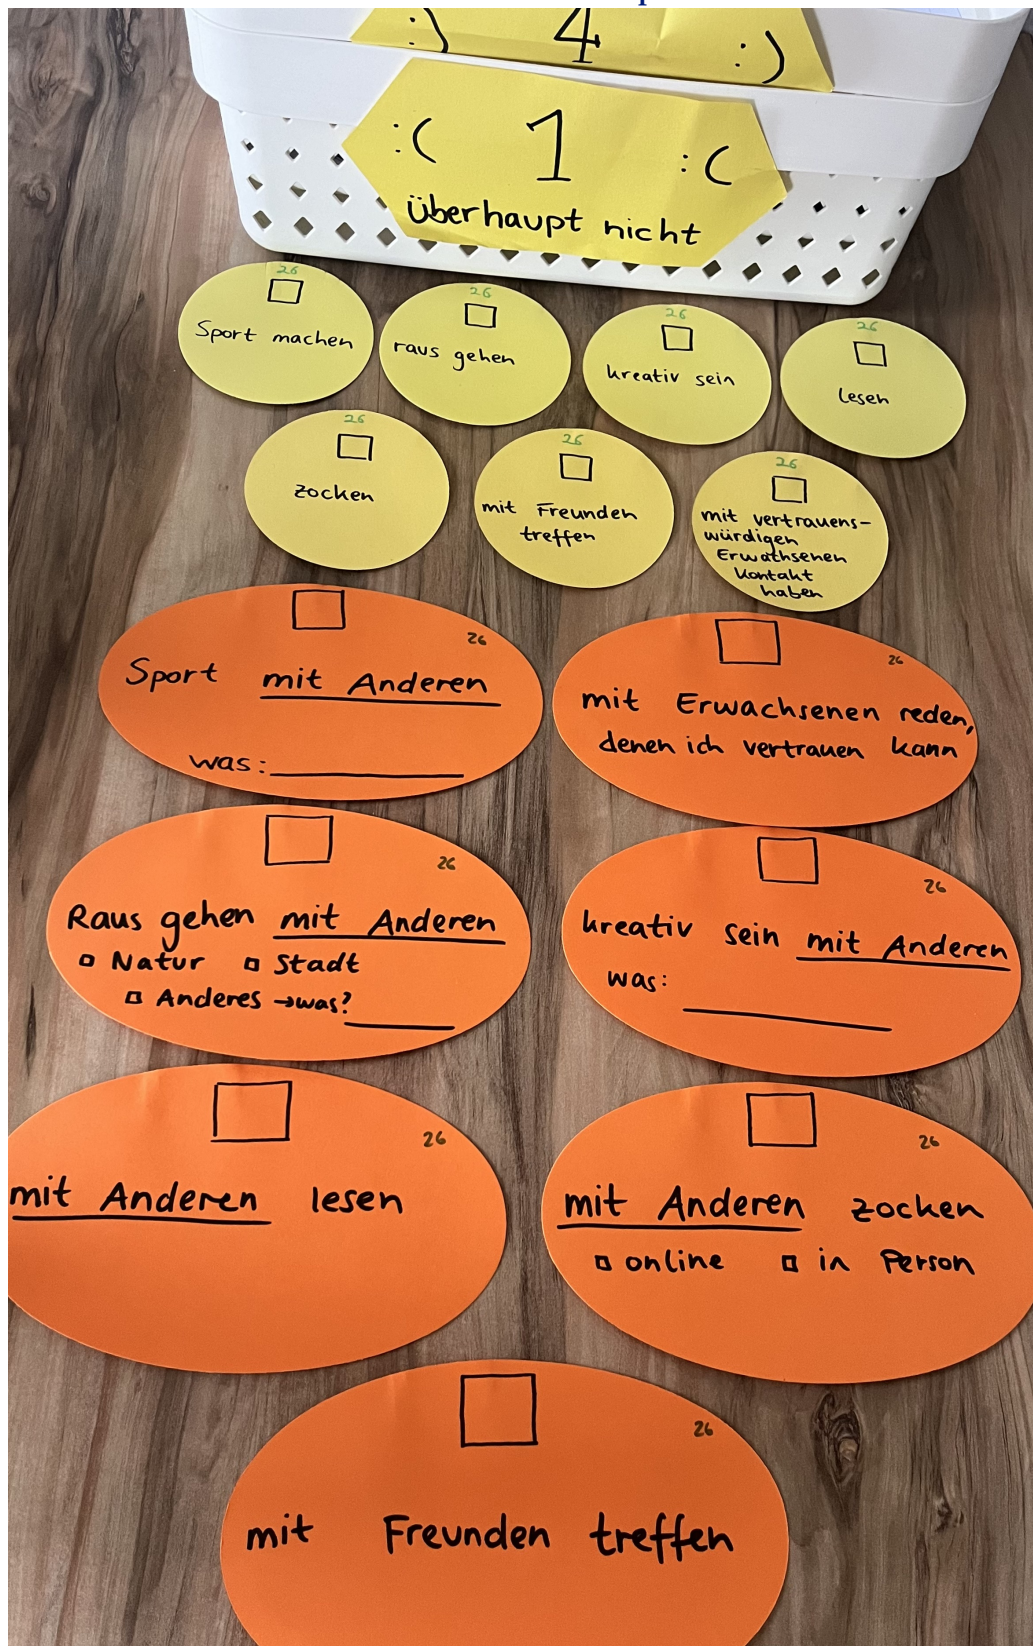 :) 4 :)
:( 1 :(
überhaupt nicht
26
Sport machen
26
raus gehen
26
kreativ sein
26
lesen
26
zocken
26
mit Freunden
treffen
26
mit vertrauens-
würdigen
Erwathsenen
Kontakt
haben
26
Sport mit Anderen
was:
26
mit Erwachsenen reden,
denen ich vertrauen kann
26
Raus gehen mit Anderen
Natur Stadt
Anderes →was?
26
kreativ sein mit Anderen
was:
26
mit Anderen lesen
26
mit Anderen zocken
online in Person
26
mit Freunden treffen